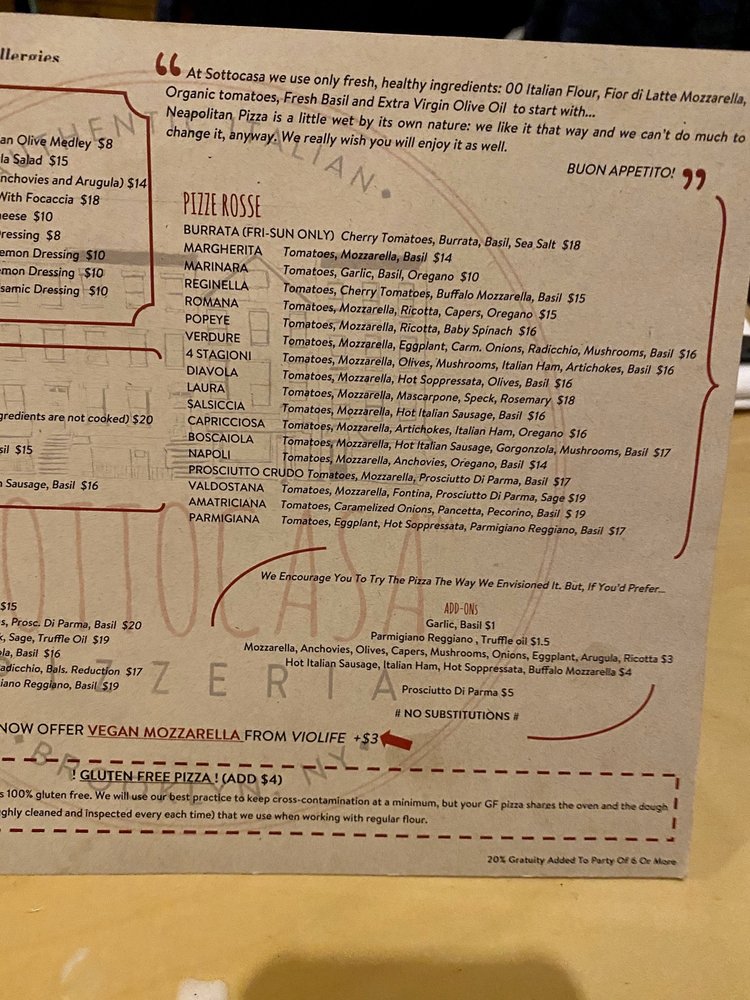 llergies
“ At Sottocasa we use only fresh, healthy ingredients: 00 Italian Flour, Fior di Latte Mozzarella,
Organic tomatoes, Fresh Basil and Extra Virgin Olive Oil to start with...
Neapolitan Pizza is a little wet by its own nature: we like it that way and we can't do much to
change it, anyway. We really wish you will enjoy it as well.
BUON APPETITO! ”
an Olive Medley $8
la Salad $15
nchovies and Arugula) $14
With Focaccia $18
heese $10
ressing $8
emon Dressing $10
emon Dressing $10
samic Dressing $10
gredients are not cooked) $20
sil $15
n Sausage, Basil $16
PIZZE ROSSE
BURRATA (FRI-SUN ONLY) Cherry Tomatoes, Burrata, Basil, Sea Salt $18
MARGHERITA Tomatoes, Mozzarella, Basil $14
MARINARA Tomatoes, Garlic, Basil, Oregano $10
REGINELLA Tomatoes, Cherry Tomatoes, Buffalo Mozzarella, Basil $15
ROMANA Tomatoes, Mozzarella, Ricotta, Capers, Oregano $15
POPEYE Tomatoes, Mozzarella, Ricotta, Baby Spinach $16
VERDURE Tomatoes, Mozzarella, Eggplant, Carm. Onions, Radicchio, Mushrooms, Basil $16
4 STAGIONI Tomatoes, Mozzarella, Olives, Mushrooms, Italian Ham, Artichokes, Basil $16
DIAVOLA Tomatoes, Mozzarella, Hot Soppressata, Olives, Basil $16
LAURA Tomatoes, Mozzarella, Mascarpone, Speck, Rosemary $18
SALSICCIA Tomatoes, Mozzarella, Hot Italian Sausage, Basil $16
CAPRICCIOSA Tomatoes, Mozzarella, Artichokes, Italian Ham, Oregano $16
BOSCAIOLA Tomatoes, Mozzarella, Hot Italian Sausage, Gorgonzola, Mushrooms, Basil $17
NAPOLI Tomatoes, Mozzarella, Anchovies, Oregano, Basil $14
PROSCIUTTO CRUDO Tomatoes, Mozzarella, Prosciutto Di Parma, Basil $17
VALDOSTANA Tomatoes, Mozzarella, Fontina, Prosciutto Di Parma, Sage $19
AMATRICIANA Tomatoes, Caramelized Onions, Pancetta, Pecorino, Basil $ 19
PARMIGIANA Tomatoes, Eggplant, Hot Soppressata, Parmigiano Reggiano, Basil $17
We Encourage You To Try The Pizza The Way We Envisioned It. But, If You'd Prefer...
ADD-ONS
Garlic, Basil $1
Parmigiano Reggiano , Truffle oil $1.5
Mozzarella, Anchovies, Olives, Capers, Mushrooms, Onions, Eggplant, Arugula, Ricotta $3
Hot Italian Sausage, Italian Ham, Hot Soppressata, Buffalo Mozzarella $4
Prosciutto Di Parma $5
# NO SUBSTITUTIONS #
$15
s, Prosc. Di Parma, Basil $20
k, Sage, Truffle Oil $19
la, Basil $16
adicchio, Bals. Reduction $17
iano Reggiano, Basil $19
NOW OFFER VEGAN MOZZARELLA FROM VIOLIFE +$3
! GLUTEN FREE PIZZA ! (ADD $4)
s 100% gluten free. We will use our best practice to keep cross-contamination at a minimum, but your GF pizza shares the oven and the dough
ghly cleaned and inspected every each time) that we use when working with regular flour.
20% Gratuity Added To Party Of 6 Or More
HENTIC ITALIAN
OTTOCASA
PIZZERIA
BROOKLYN, NY